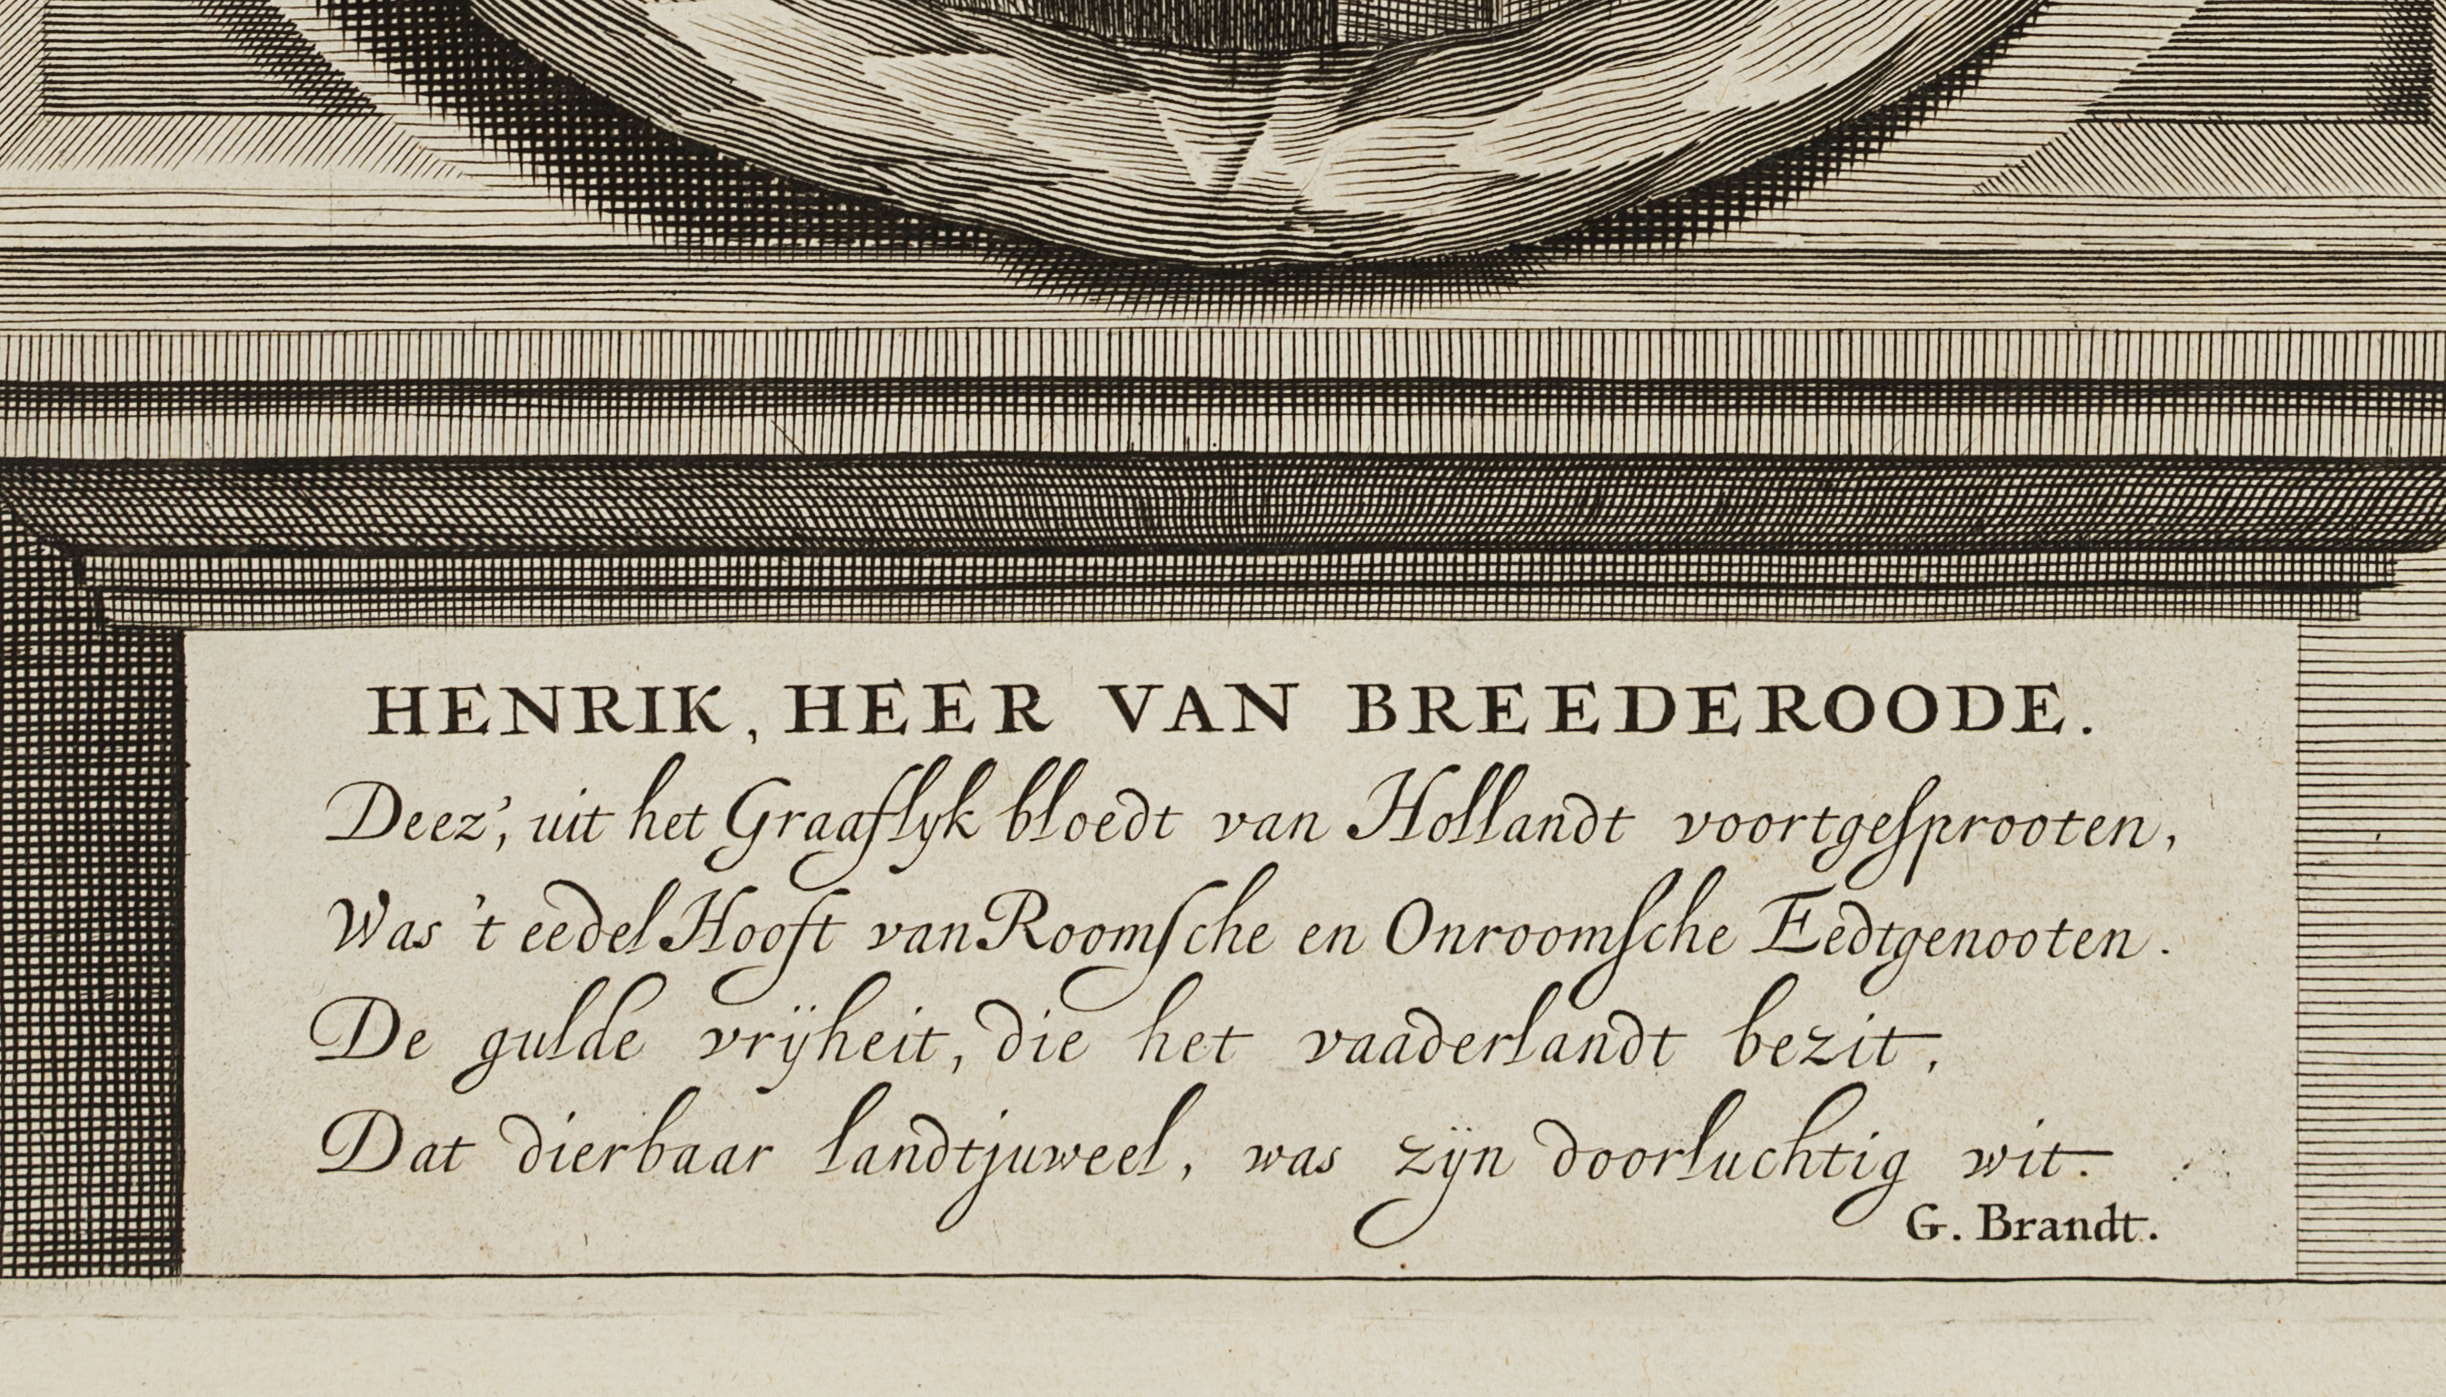 HENRIK, HEER VAN BREEDEROODE.
Deez', uit het Graaflyk bloedt van Hollandt voortgeſprooten,
Was 't eedel Hooft van Roomſche en Onroomſche Eedtgenooten.
De gulde vrÿheit, die het vaaderlandt bezit,
Dat dierbaar landtjuweel, was zÿn doorluchtig wit.
G. Brandt.